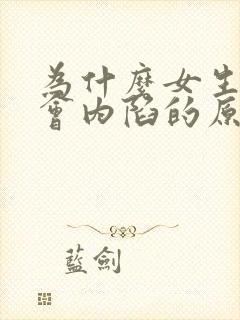 為什麼女生
會內陷的原
藍劍